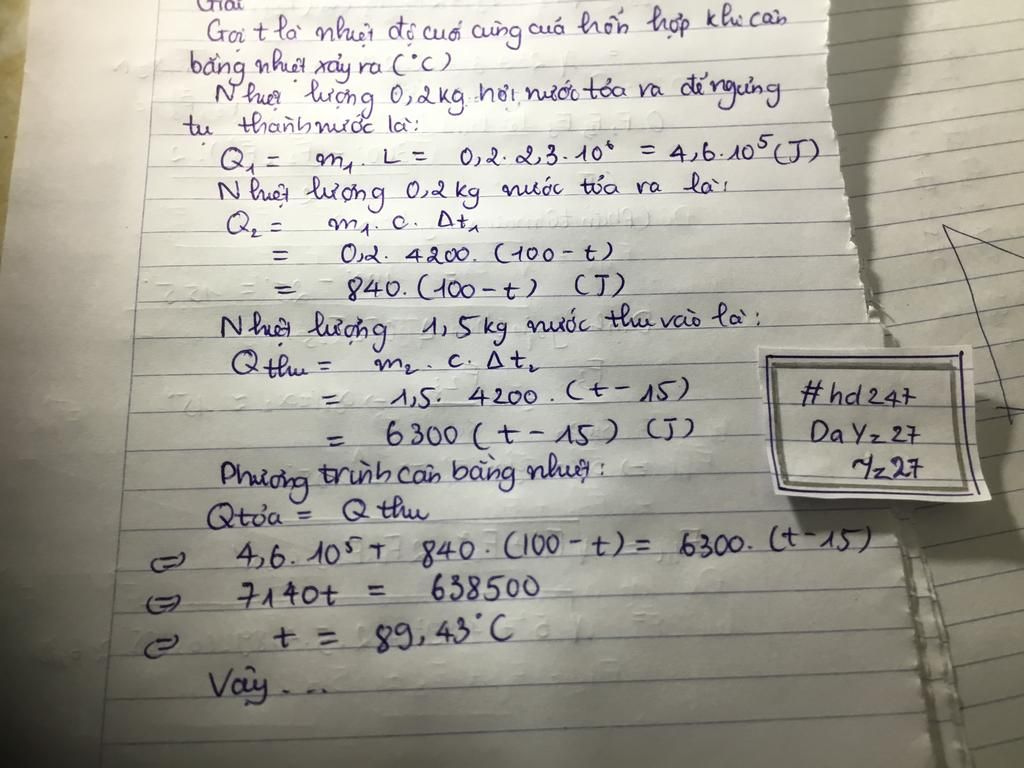 Giải
Gọi t là nhiệt độ cuối cùng của hỗn hợp khi cân
bằng nhiệt xảy ra (°C)
Nhiệt lượng 0,2kg hơi nước tỏa ra để ngưng
tụ thành nước là:
Q₁ = m₁. L = 0,2. 2,3. 10⁶ = 4,6. 10⁵ (J)
Nhiệt lượng 0,2kg nước tỏa ra là:
Q₂ = m₁. c. Δt₁
= 0,2. 4200. (100 - t)
= 840. (100 - t) (J)
Nhiệt lượng 1,5kg nước thu vào là:
Q thu = m₂. c. Δt₂
= 1,5. 4200. (t - 15)
= 6300 (t - 15) (J)
Phương trình cân bằng nhiệt:
Q tỏa = Q thu
⇔ 4,6. 10⁵ + 840. (100 - t) = 6300. (t - 15)
⇔ 7140t = 638500
⇔ t = 89,43°C
Vậy ...
#hd247
DaYz27
Yz27